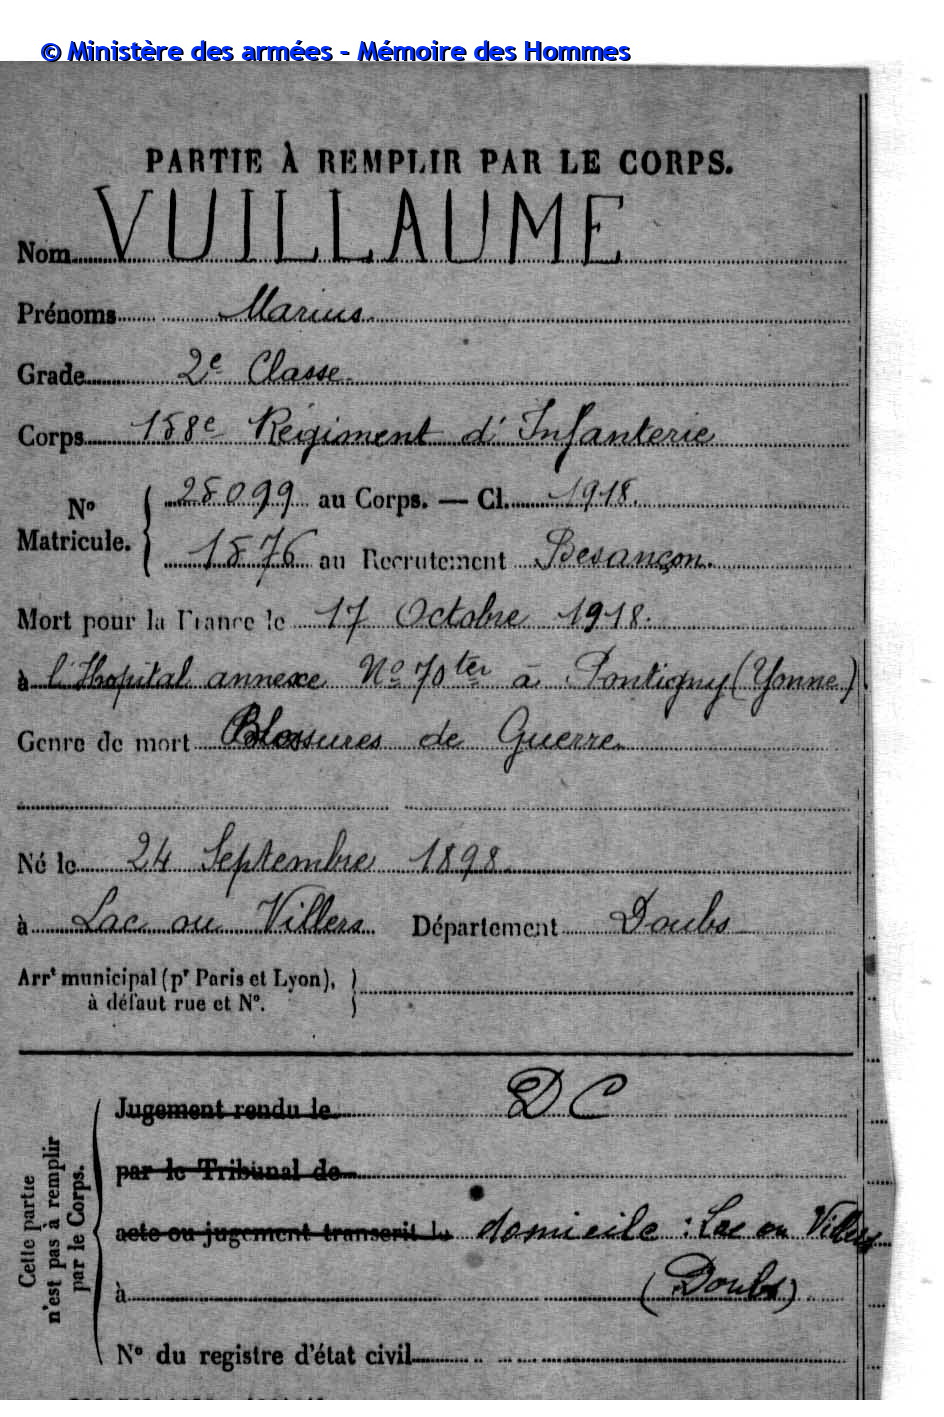 © Ministère des armées - Mémoire des Hommes
PARTIE À REMPLIR PAR LE CORPS.
Nom VUILLAUME
Prénoms Marius
Grade 2e Classe
Corps 158e Régiment d'Infanterie
No Matricule. { 25099 au Corps. — Cl. 1918.
1576 au Recrutement Besançon.
Mort pour la France le 17 Octobre 1918.
à l'Hopital annexe No 70 ter à Pontigny (Yonne)
Genre de mort Blessures de Guerre
Né le 24 Septembre 1898
à Lac ou Villers Département Doubs
Arrt municipal (pr Paris et Lyon),
à défaut rue et No.
Cette partie
n'est pas à remplir
par le Corps.
Jugement rendu le DC
par le Tribunal de
acte ou jugement transcrit le domicile : Lac ou Villers
à (Doubs)
No du registre d'état civil